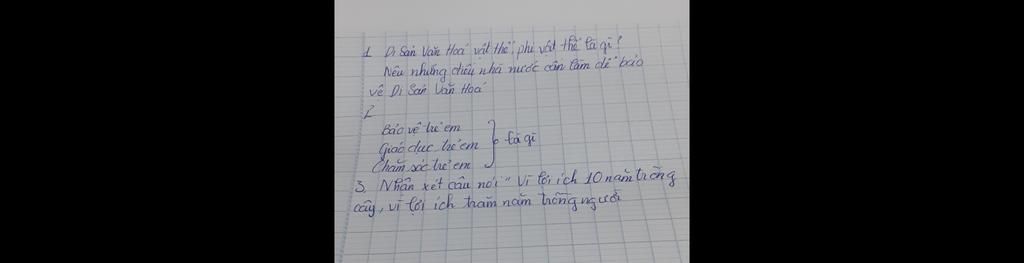 1 Di Sản Văn Hoá vật thể, phi vật thể là gì?
Nêu những điều nhà nước cần làm để bảo
vệ Di Sản Văn Hoá
2
Bảo vệ trẻ em
Giáo dục trẻ em } là gì
Chăm sóc trẻ em
3. Nhận xét câu nói "Vì lợi ích 10 năm trồng
cây, vì lợi ích trăm năm trồng người